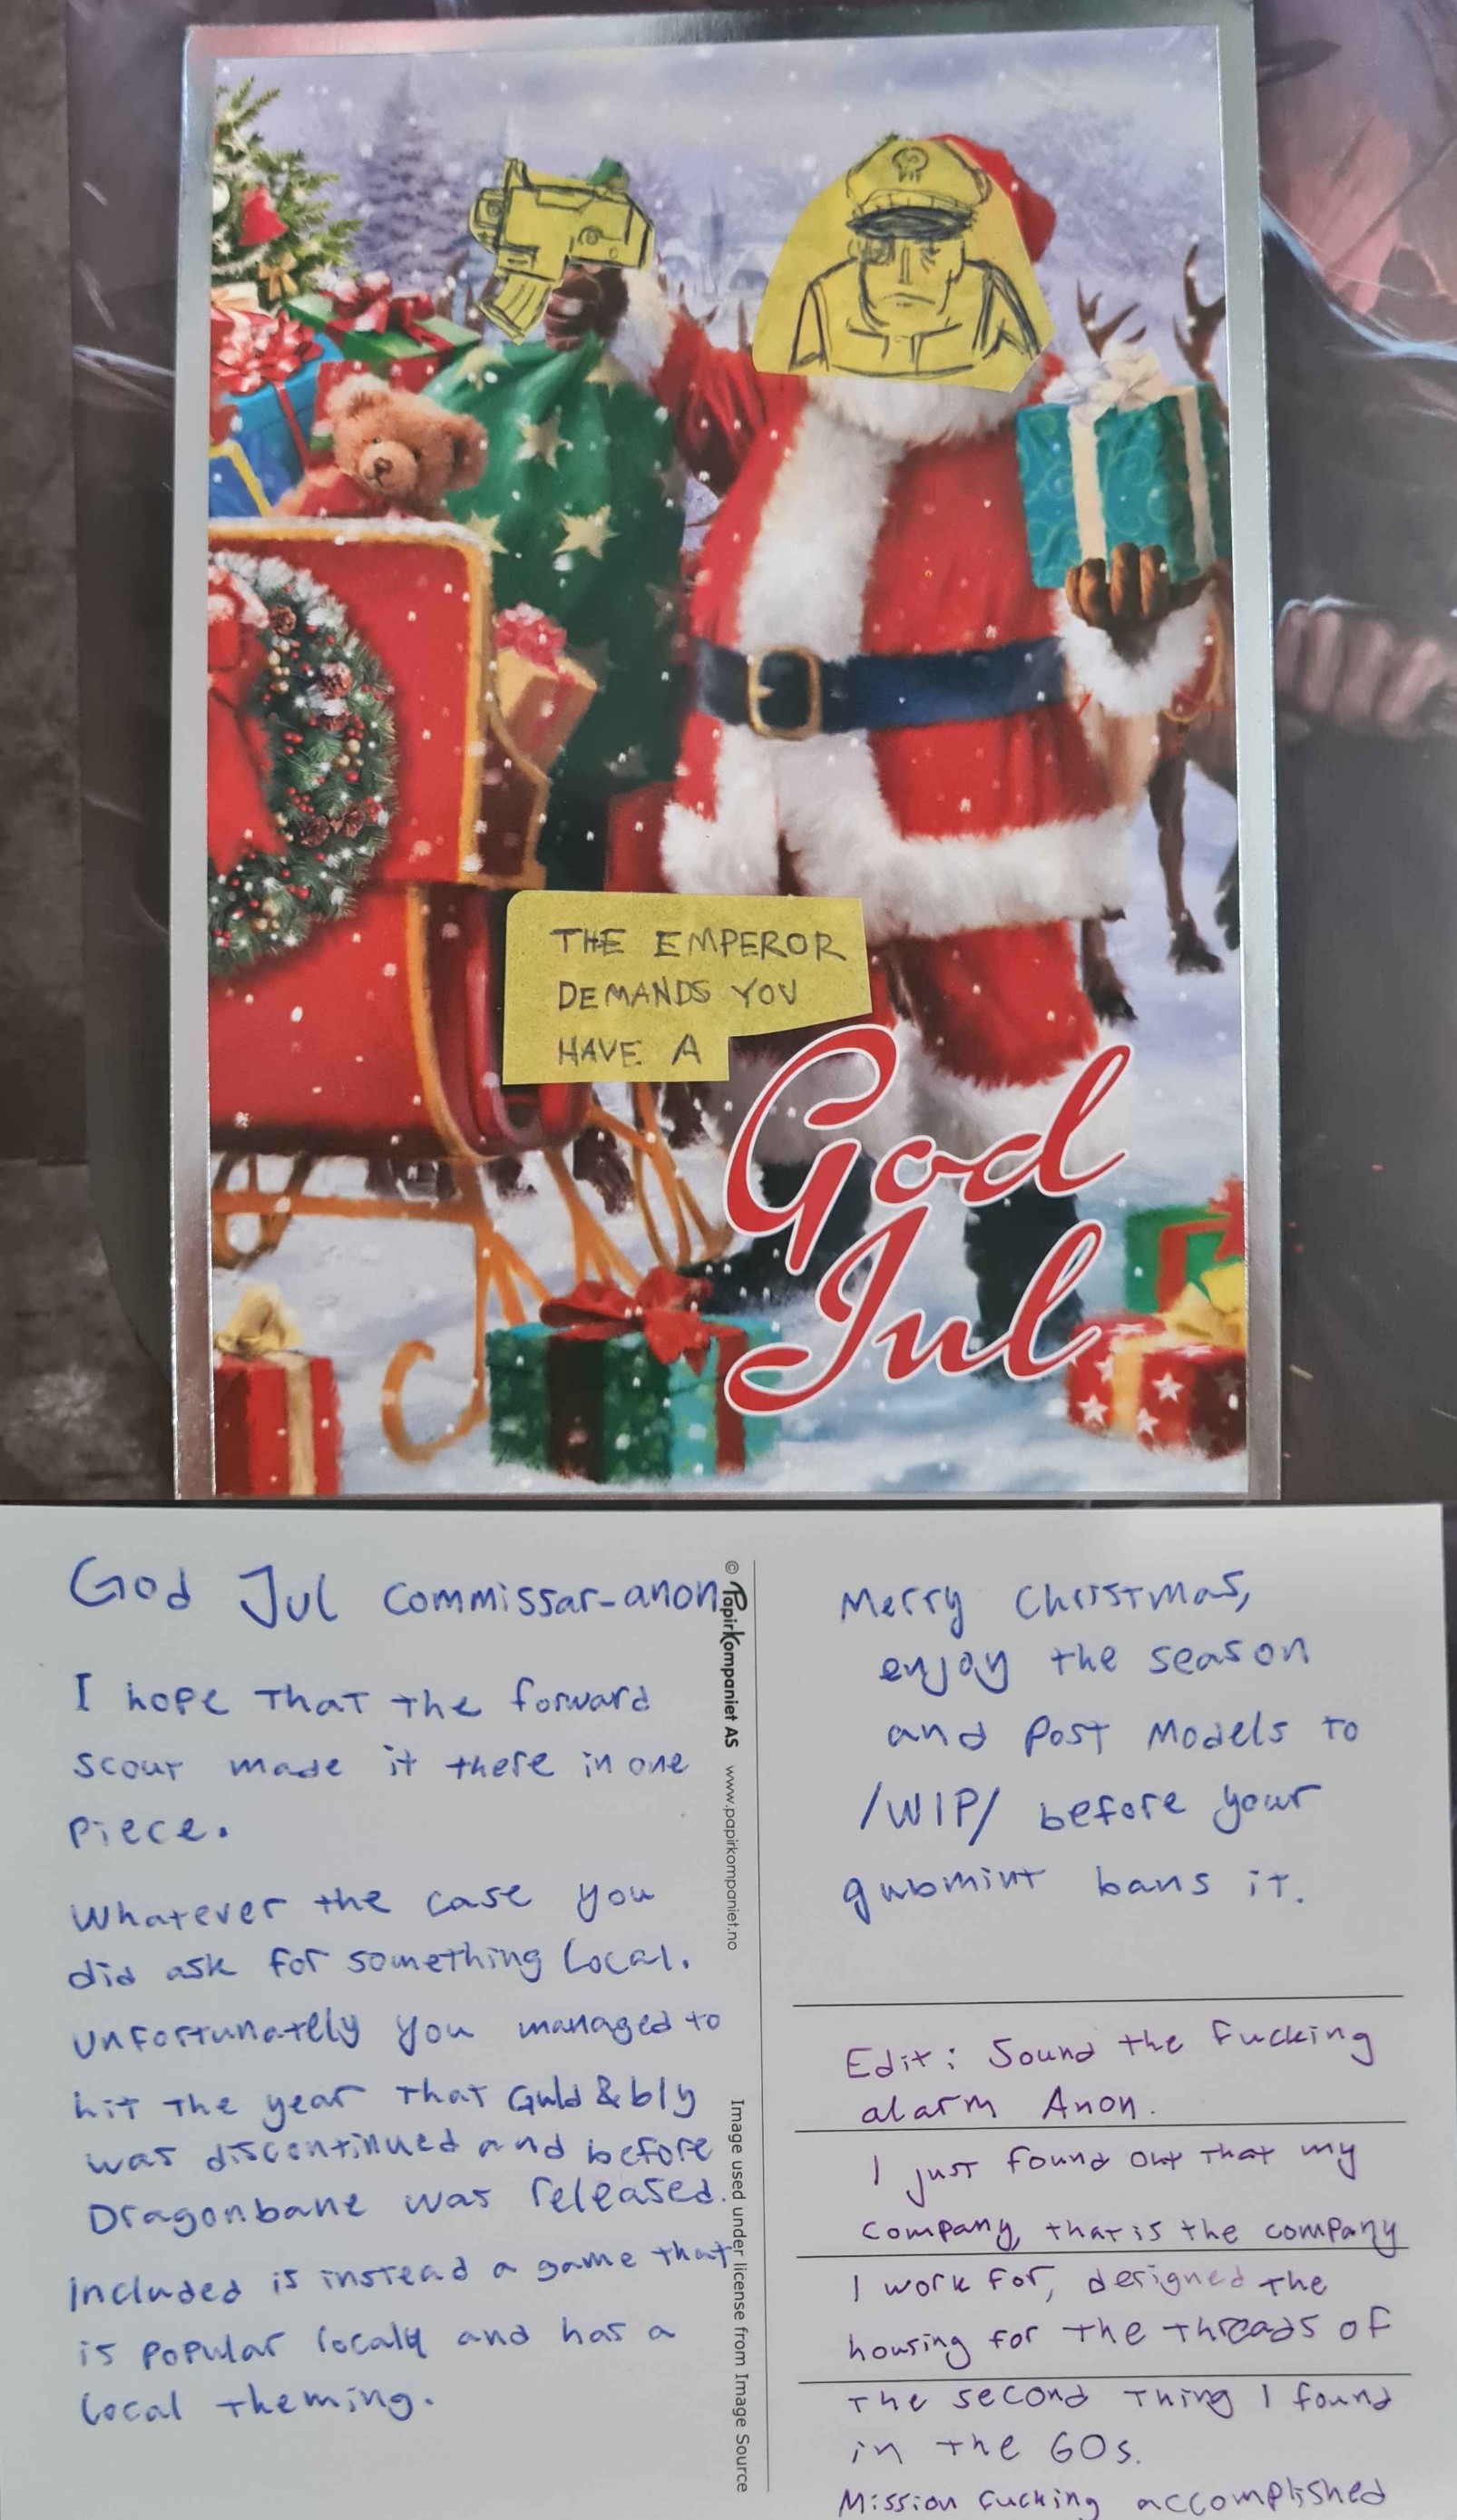 THE EMPEROR
DEMANDS YOU
HAVE A
God
Jul
God Jul commissar-anon
I hope that the forward
scout made it there in one
piece.
Whatever the case you
did ask for something local.
Unfortunately you managed to
hit the year that Guld & bly
was discontinued and before
Dragonbane was released.
Included is instead a game that
is popular localy and has a
local theming.
© PapirKompaniet AS www.papirkompaniet.no
Image used under license from Image Source
Merry Christmas,
enjoy the season
and post models to
/WIP/ before your
gubmint bans it.
Edit: Sound the fucking
alarm Anon.
I just found out that my
company, that is the company
I work for, designed the
housing for the threads of
the second thing I found
in the 60s.
Mission fucking accomplished